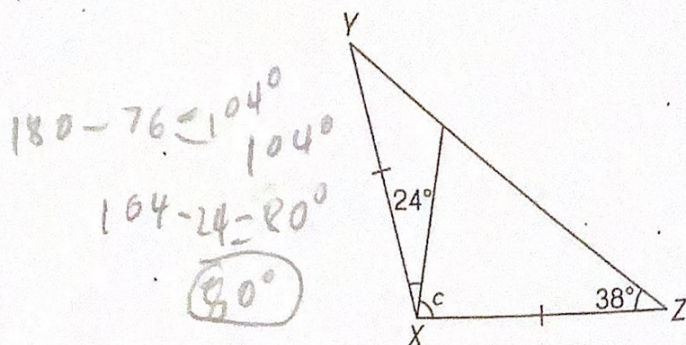 Y
180-76=104°
104°
104-24=80°
80°
24°
c
38°
X
Z